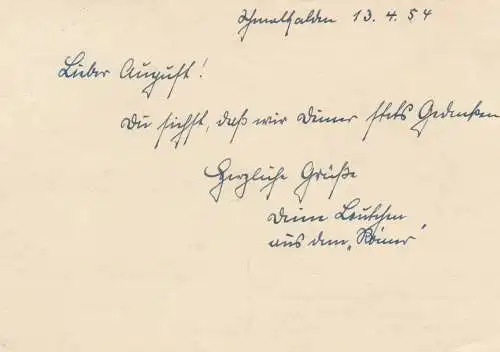 Schmalkalden 13.4.54
Lieber August!
Du siehst, daß wir Deiner stets gedenken
Herzliche Grüße
Deine Leutchen
aus dem „Römer"